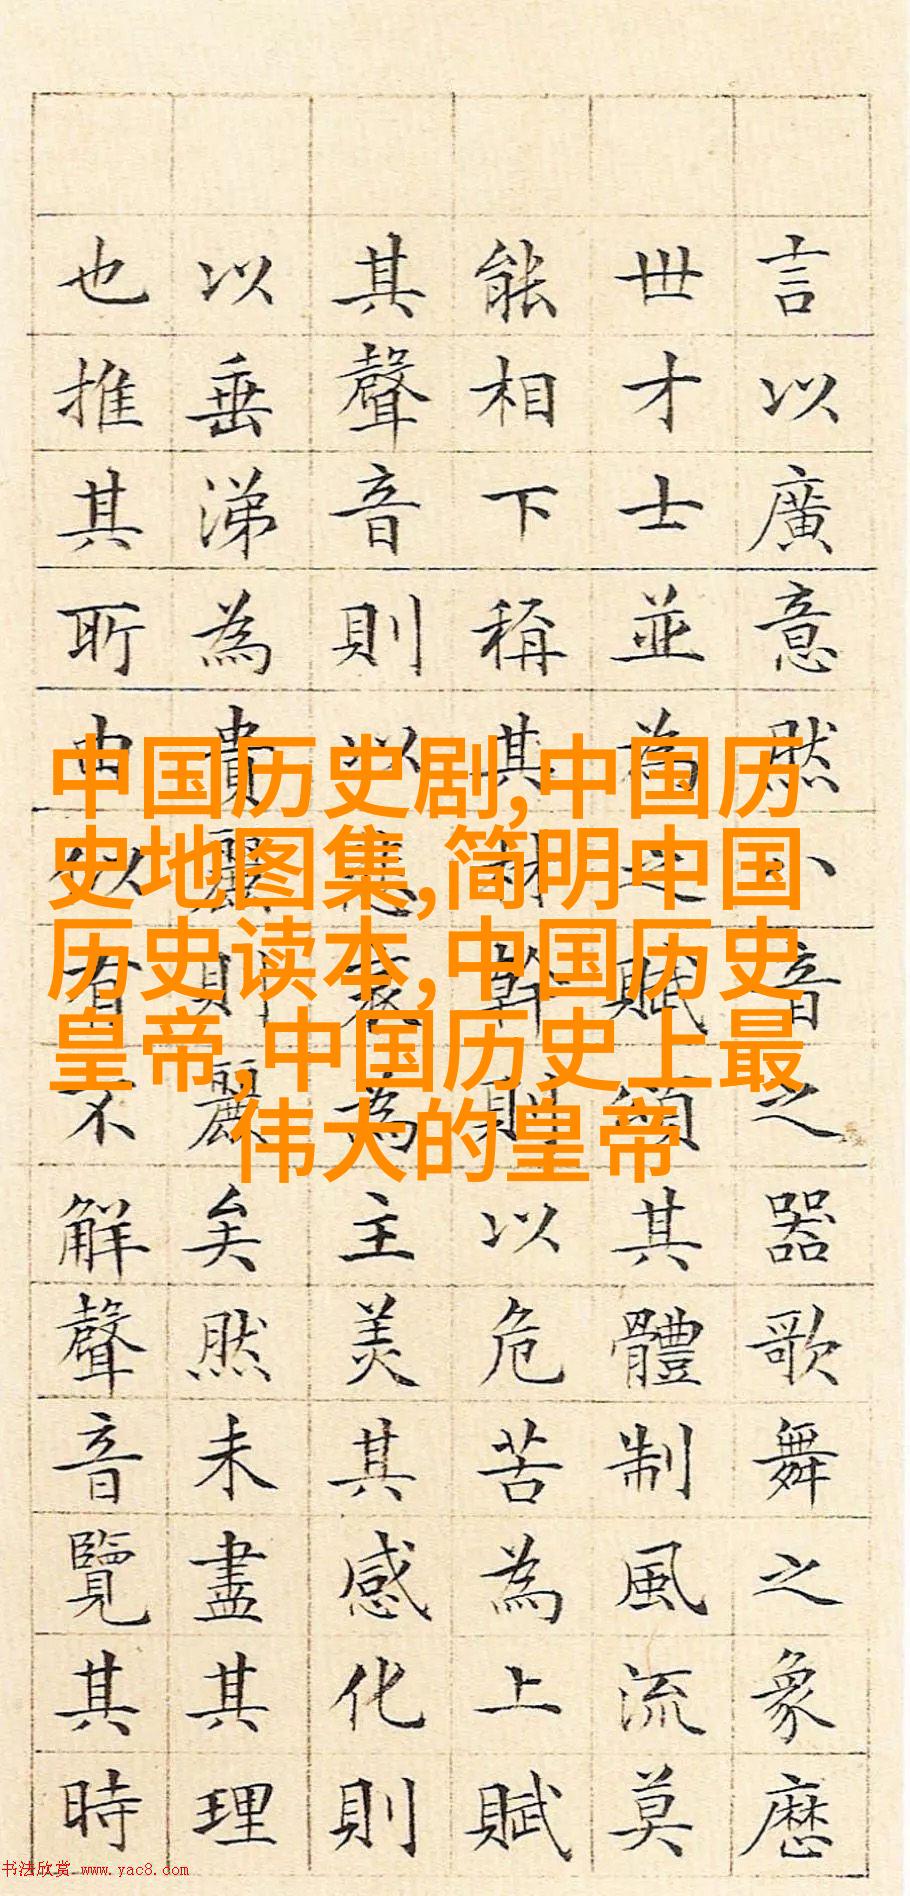 言以廣意然八音之器歌舞之象歷
世才士並為之賦頌其體制風流莫
能相下稱其材幹則以危苦為上賦
其聲音則以悲哀為主美其感化則
以垂涕為貴麗則麗矣然未盡其理
也推其所由似有不解聲音覽其時
中国历史剧,中国历
史地图集,简明中国
历史读本,中国历史
皇帝,中国历史上最
伟大的皇帝
书法欣赏 www.yac8.com